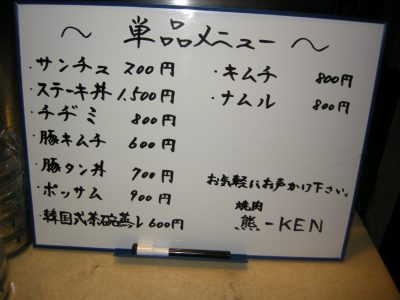 ～ 単品メニュー ～
・サンチュ 200円
・ステーキ丼 1.500円
・チヂミ 800円
・豚キムチ 600円
・豚タン丼 700円
・ポッサム 900円
・韓国式茶碗蒸し 600円
・キムチ 800円
・ナムル 800円
お気軽にお声かけ下さい。
焼肉
熊-KEN